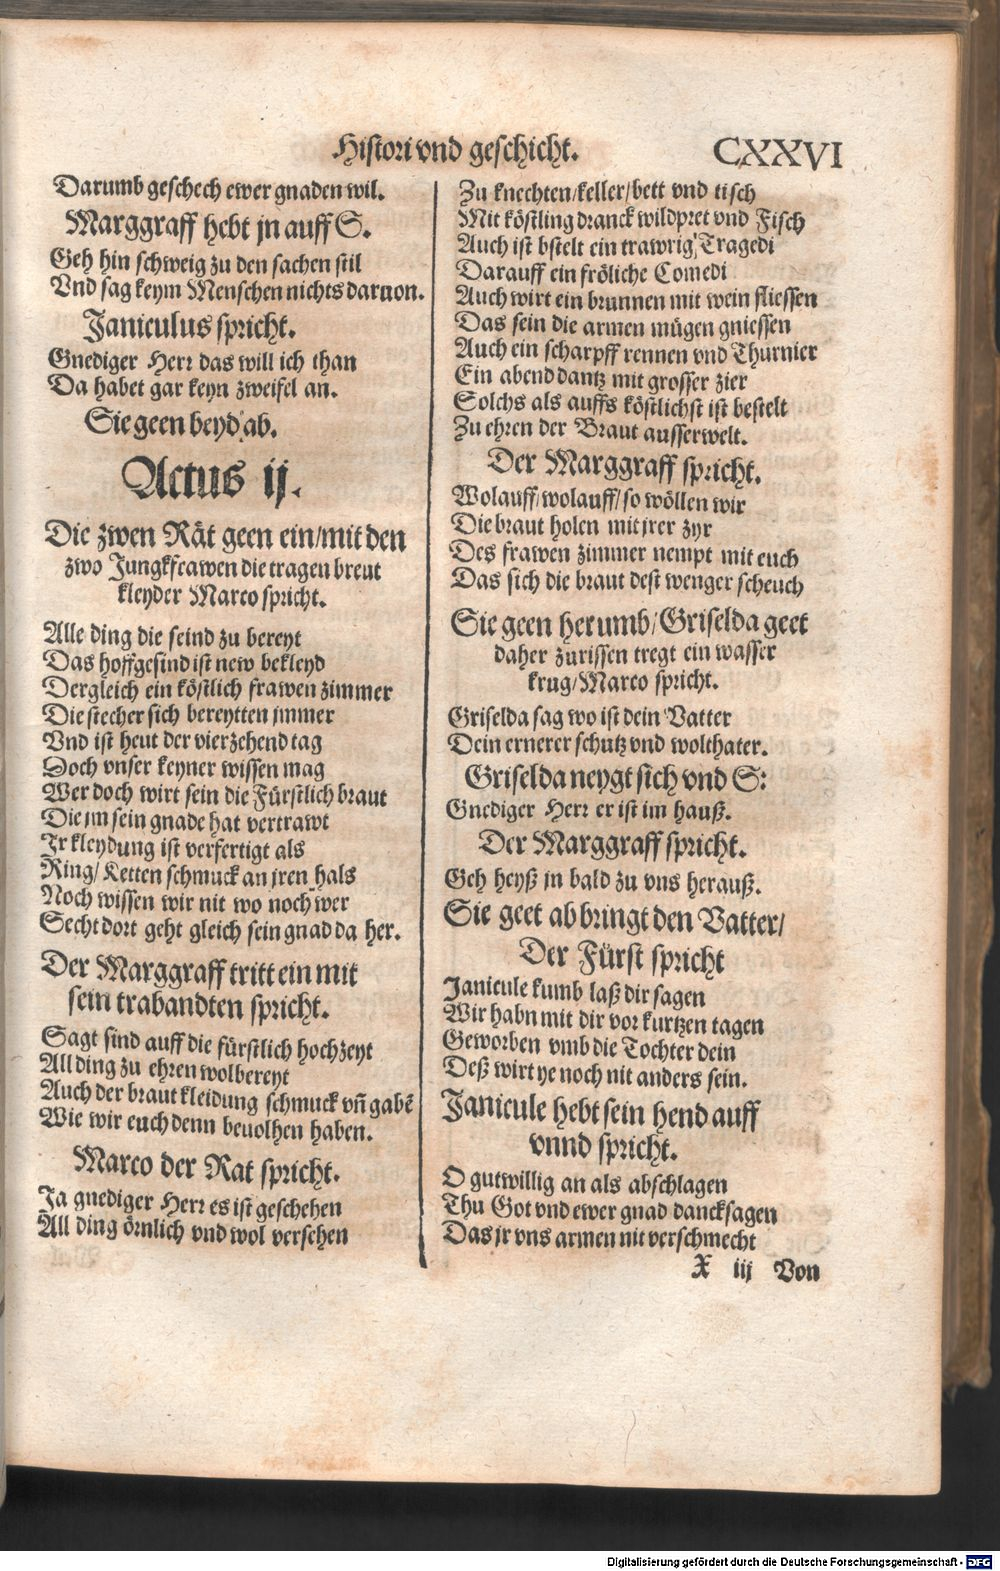 Histori vnd geschicht. CXXVI
Darumb geschech ewer gnaden wil.
Marggraff hebt jn auff S.
Geh hin schweig zu den sachen stil
Vnd sag keym Menschen nichts daruon.
Janiculus spricht.
Gnediger Herr das will ich than
Da habet gar keyn zweifel an.
Sie geen beyd ab.
Actus ij.
Die zwen Rät geen ein/mit den
zwo Jungkfrawen die tragen breut
kleyder Marco spricht.
Alle ding die seind zu bereyt
Das hoffgesind ist new bekleyd
Dergleich ein köstlich frawen zimmer
Die stecher sich bereytten jmmer
Vnd ist heut der vierzehend tag
Doch vnser keyner wissen mag
Wer doch wirt sein die Fürstlich braut
Die jm sein gnade hat vertrawt
Ir kleydung ist verfertigt als
Ring/ Ketten schmuck an jren hals
Noch wissen wir nit wo noch wer
Secht dort geht gleich sein gnad da her.
Der Marggraff tritt ein mit
sein trabandten spricht.
Sagt sind auff die fürstlich hochzeyt
All ding zu ehren wolbereyt
Auch der braut kleidung schmuck vñ gabē
Wie wir euch denn beuolhen haben.
Marco der Rat spricht.
Ja gnediger Herr es ist geschehen
All ding örnlich vnd wol versehen
Zu knechten/keller/bett vnd tisch
Mit köstling dranck wildpret vnd Fisch
Auch ist bstelt ein trawrig Tragedi
Darauff ein fröliche Comedi
Auch wirt ein brunnen mit wein fliessen
Das sein die armen mügen gniessen
Auch ein scharpff rennen vnd Thurnier
Ein abend dantz mit grosser zier
Solchs als auffs köstlichst ist bestelt
Zu ehren der Braut ausserwelt.
Der Marggraff spricht.
Wolauff/wolauff/so wöllen wir
Die braut holen mit jrer zyr
Des frawen zimmer nempt mit euch
Das sich die braut dest wenger scheuch
Sie geen herumb/Griselda geet
daher zurissen tregt ein wasser
krug/Marco spricht.
Griselda sag wo ist dein Vatter
Dein ernerer schutz vnd wolthater.
Griselda neygt sich vnd S:
Gnediger Herr er ist im hauß.
Der Marggraff spricht.
Geh heyß jn bald zu vns herauß.
Sie geet ab bringt den Vatter/
Der Fürst spricht
Janicule kumb laß dir sagen
Wir habn mit dir vor kurtzen tagen
Geworben vmb die Tochter dein
Deß wirt ye noch nit anders sein.
Janicule hebt sein hend auff
vnnd spricht.
O gutwillig an als abschlagen
Thu Got vnd ewer gnad dancksagen
Das jr vns armen nit verschmecht
X iij Von
Digitalisierung gefördert durch die Deutsche Forschungsgemeinschaft - DFG